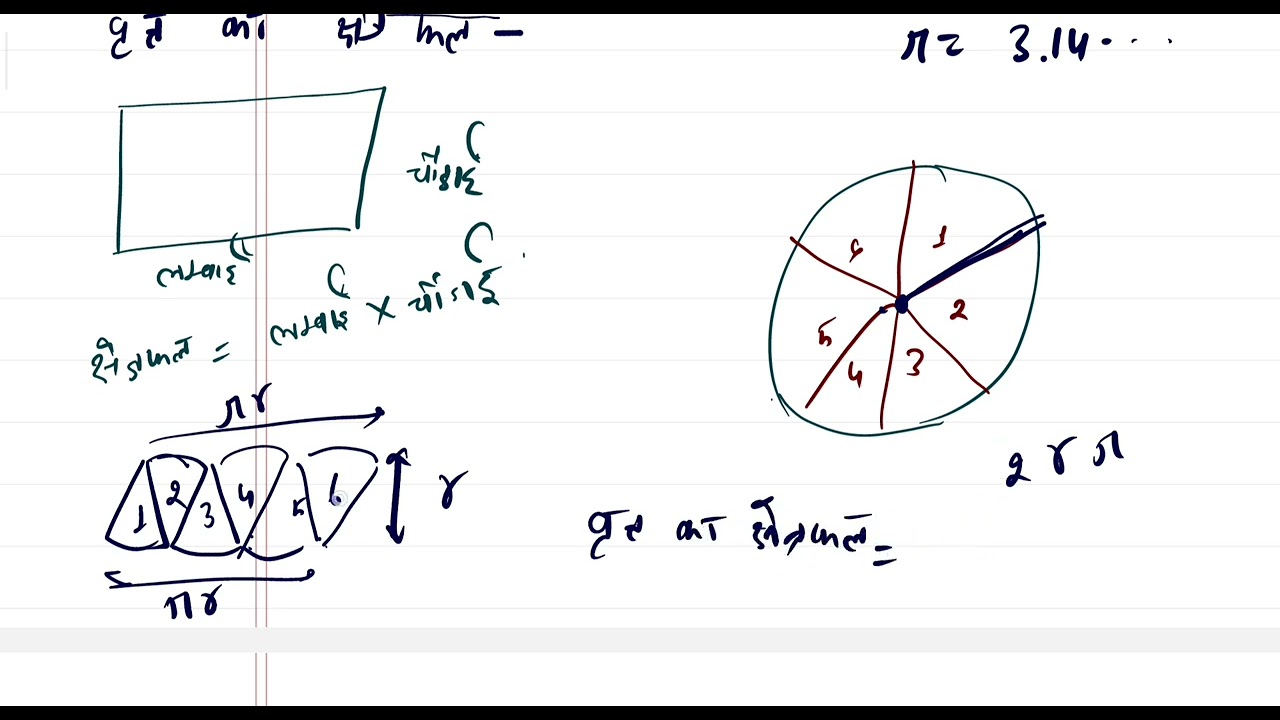 वृत्त का क्षेत्रफल –
π = 3.14...
चौड़ाई
लम्बाई
क्षेत्रफल = लम्बाई × चौड़ाई
6 1
5 2
4 3
πr
1 2 3 4 5 6
r
πr
2 r π
वृत्त का क्षेत्रफल =